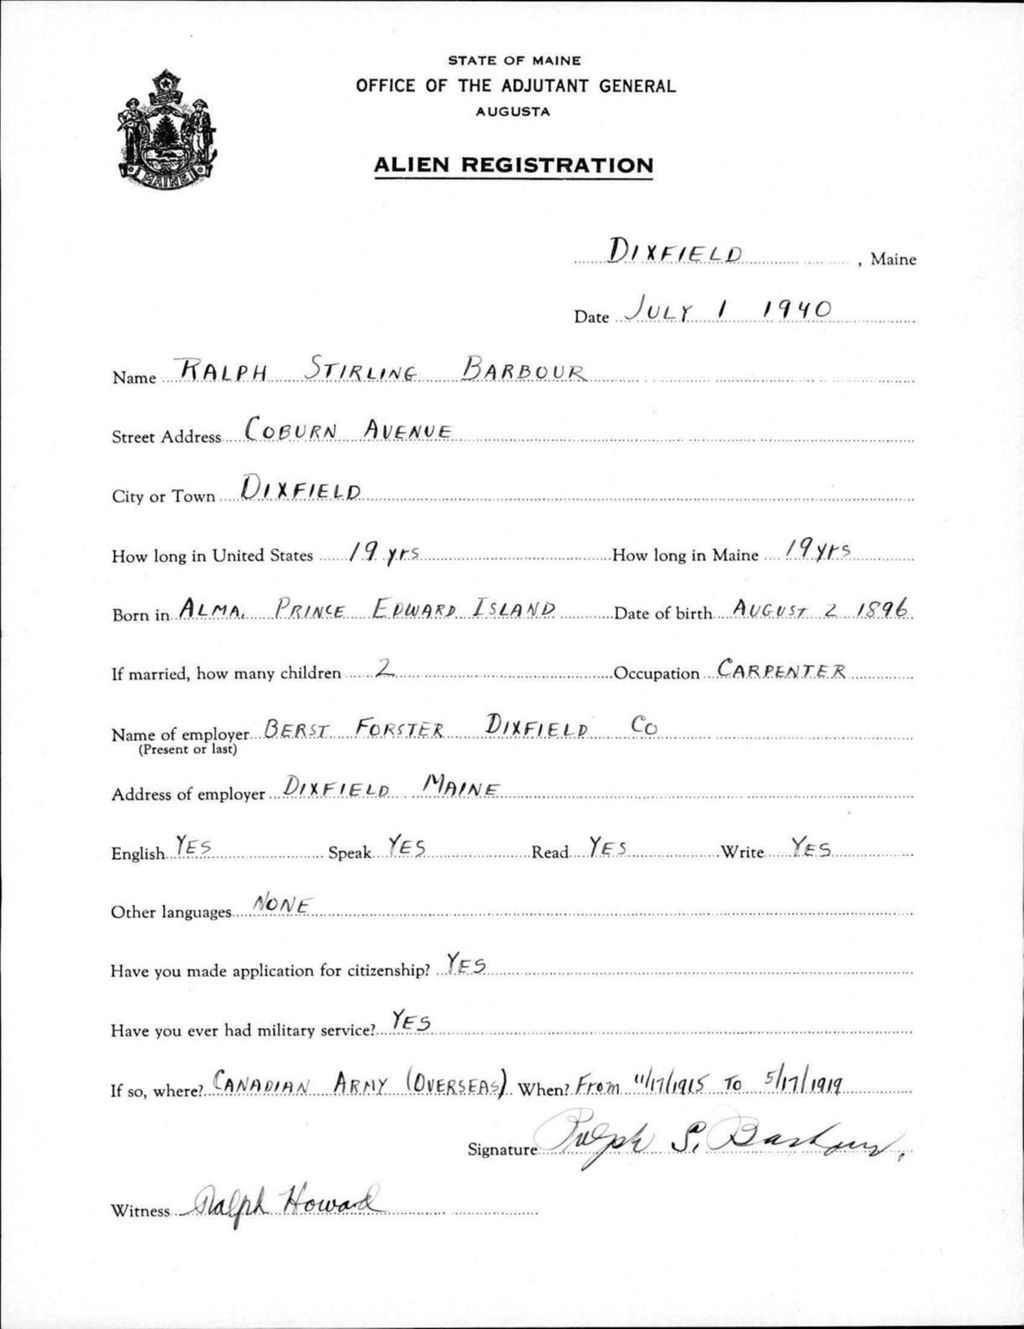 STATE OF MAINE
OFFICE OF THE ADJUTANT GENERAL
AUGUSTA
MAINE
ALIEN REGISTRATION
DIXFIELD, Maine
Date JULY 1 1940
Name RALPH STIRLING BARBOUR
Street Address COBURN AVENUE
City or Town DIXFIELD
How long in United States 19 yrs How long in Maine 19 yrs
Born in ALMA, PRINCE EDWARD ISLAND Date of birth AUGUST 2 1896
If married, how many children 2 Occupation CARPENTER
Name of employer BERST FORSTER DIXFIELD CO
(Present or last)
Address of employer DIXFIELD MAINE
English YES Speak YES Read YES Write YES
Other languages NONE
Have you made application for citizenship? YES
Have you ever had military service? YES
If so, where? CANADIAN ARMY (OVERSEAS) When? From 11/17/1915 TO 5/17/1919
Signature Ralph S. Barbour.
Witness Ralph Howard